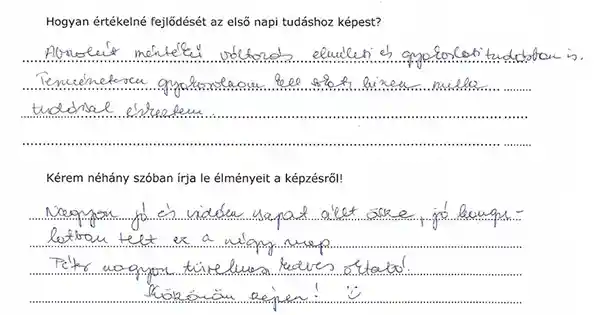 Hogyan értékelné fejlődését az első napi tudáshoz képest?
Abszolút mértékű változás elméleti és gyakorlati tudásban is.
Természetesen gyakorolnom kell még, hiszen nulla
tudással érkeztem.
Kérem néhány szóban írja le élményeit a képzésről!
Nagyon jó és vidám csapat állt össze, jó hangu-
latban telt ez a négy nap
Péter nagyon türelmes kedves oktató!
Köszönöm szépen! :)